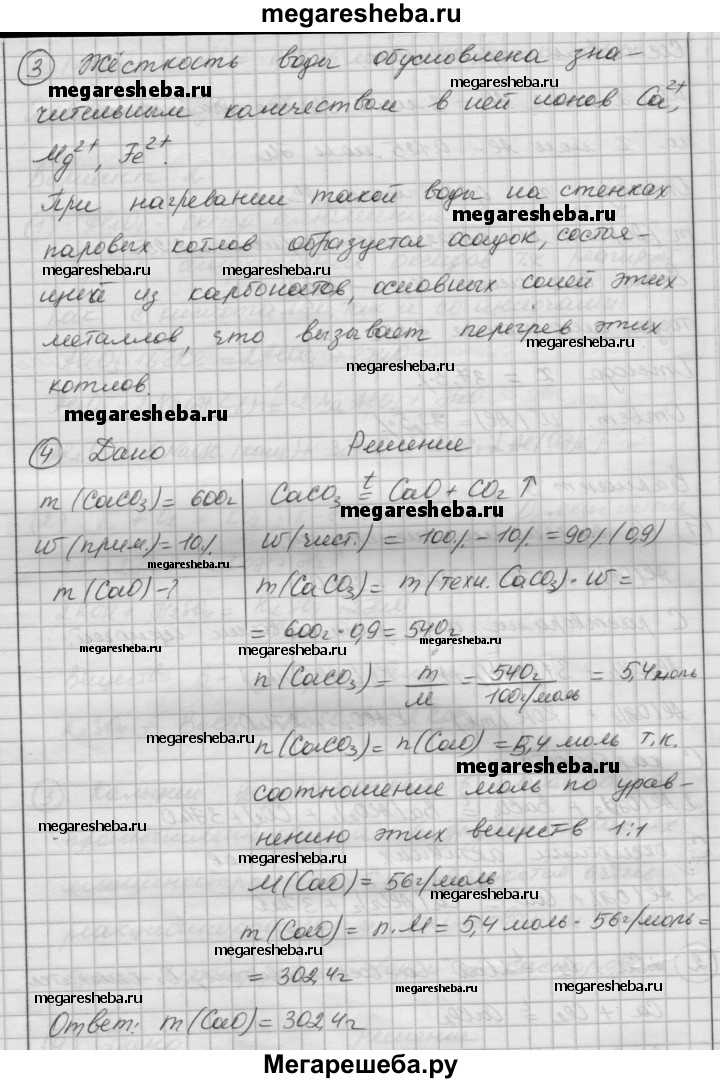 megaresheba.ru
3 Жёсткость воды обусловлена зна-
megaresheba.ru megaresheba.ru
чительным количеством в ней ионов Ca²⁺,
Mg²⁺, Fe²⁺.
При нагревании такой воды на стенках
megaresheba.ru
паровых котлов образуется осадок, состоя-
megaresheba.ru megaresheba.ru megaresheba.ru
щий из карбонатов, основных солей этих
металлов, что вызывает перегрев этих
megaresheba.ru
котлов.
megaresheba.ru
megaresheba.ru
4 Дано Решение
megaresheba.ru
m (CaCO₃) = 600г CaCO₃ t= CaO + CO₂ ↑
megaresheba.ru
w (прим.) = 10% w (чист.) = 100% - 10% = 90% (0,9)
megaresheba.ru megaresheba.ru
m (CaO) - ? m (CaCO₃) = m (техн. CaCO₃) · w =
megaresheba.ru
= 600г · 0,9 = 540г
megaresheba.ru megaresheba.ru
megaresheba.ru
n (CaCO₃) = m/M = 540г/100г/моль = 5,4 моль
megaresheba.ru
n (CaCO₃) = n (CaO) = 5,4 моль т.к.
megaresheba.ru
соотношение моль по урав-
megaresheba.ru
нению этих веществ 1:1
megaresheba.ru
M (CaO) = 56г/моль
megaresheba.ru
m (CaO) = n · M = 5,4 моль · 56г/моль =
megaresheba.ru
= 302,4г
megaresheba.ru megaresheba.ru megaresheba.ru
Ответ: m (CaO) = 302,4г
Мегарешеба.ру